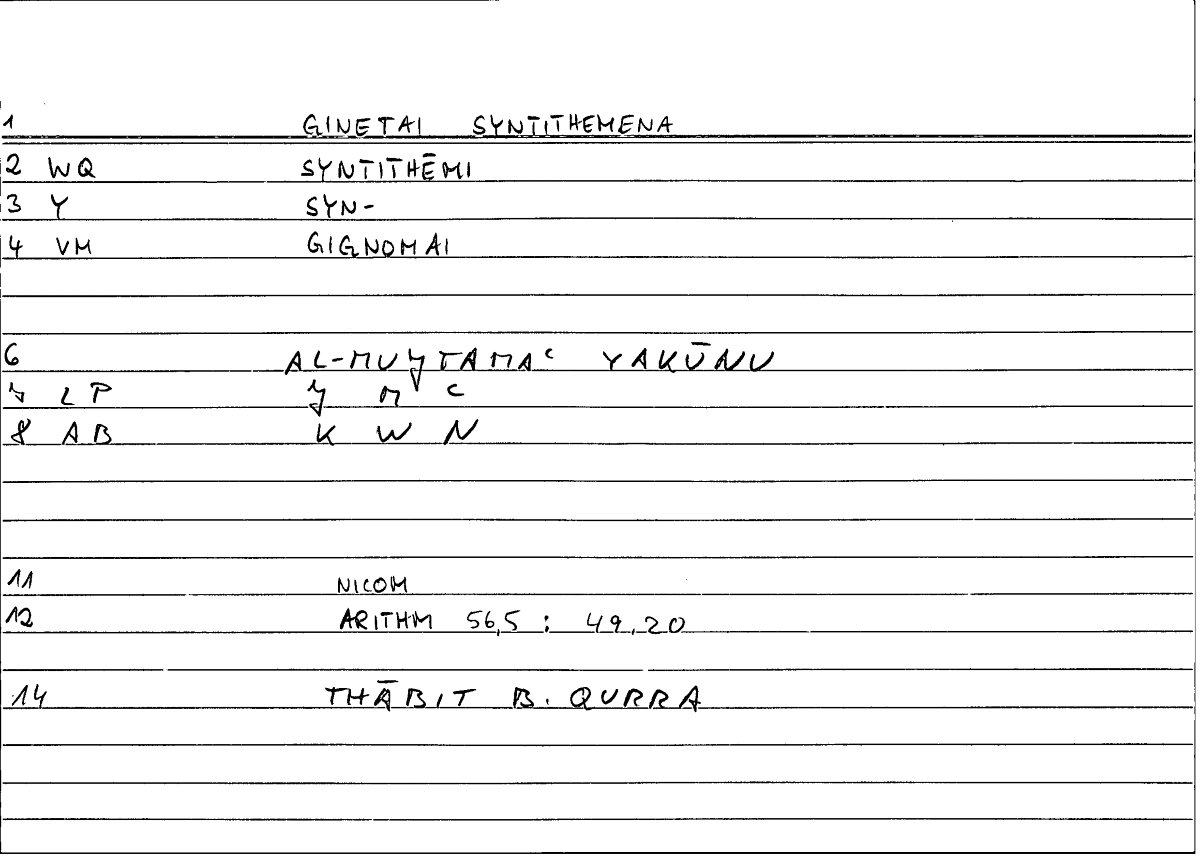 1 GINETAI SYNTITHEMENA
2 WQ SYNTITHĒMI
3 Y SYN-
4 VM GIGNOMAI
6 AL-MUǦTAMAʿ YAKŪNU
7 LP Ǧ M ʿ
8 AB K W N
11 NICOM
12 ARITHM 56,5 : 49,20
14 THĀBIT B. QURRA